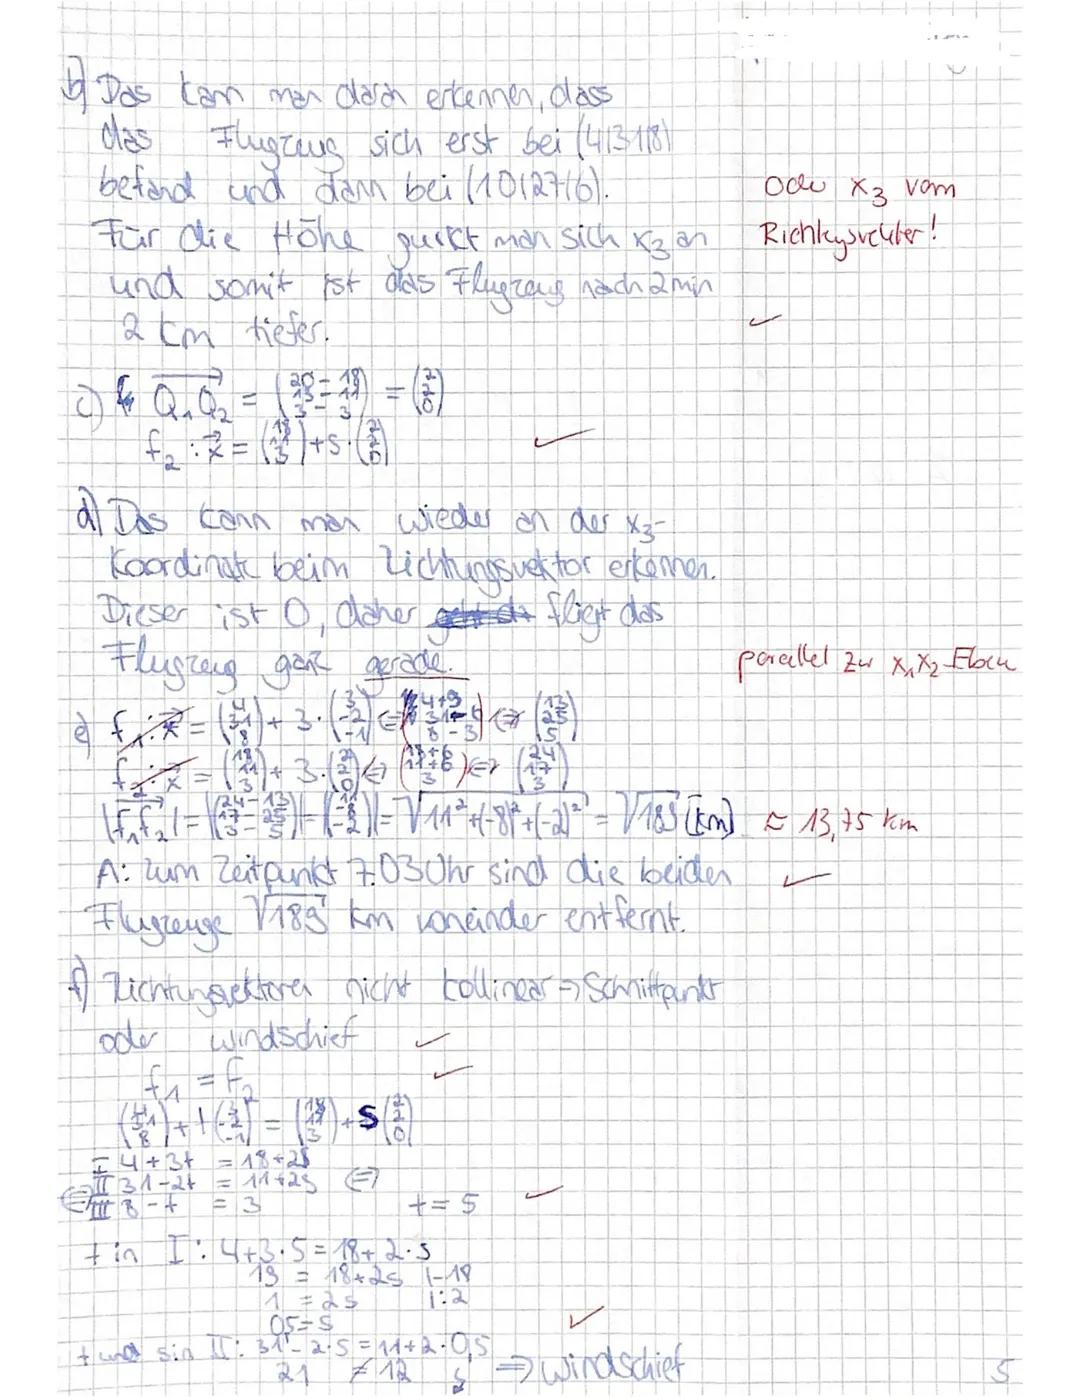 b) Das kann man daran erkennen, dass
das Flugzeug sich erst bei (4|31|8)
befand und dann bei (10|27|6).
Oder x₃ vom
Für die Höhe guckt man sich x₃ an
Richtungsvektor!
und somit ist das Flugzeug nach 2 min
2 km tiefer. ✓
c) Q₁Q₂ = (20-18 13-11 3-3) = (2 2 0)
f₂: x = (18 11 3) + s · (2 2 0) ✓
d) Das kann man wieder an der x₃-
Koordinate beim Richtungsvektor erkennen.
Dieser ist 0, daher fliegt das
Flugzeug ganz gerade.
parallel zur x₁x₂-Ebene
e) f₁: x = (4 31 8) + 3 · (3 -2 -1) ⇔ (4+9 31-6 8-3) ⇔ (13 25 5)
f₂: x = (18 11 3) + 3 · (2 2 0) ⇔ (18+6 11+6 3) ⇔ (24 17 3)
|f₁f₂| = |(24-13 17-25 3-5)| = |(11 -8 -2)| = √11²+(-8)²+(-2)² = √189 [km] ≈ 13,75 km
A: Zum Zeitpunkt 7.03 Uhr sind die beiden ✓
Flugzeuge √189 km voneinder entfernt.
f) Richtungsvektoren nicht kollinear ⇒ Schnittpunkt
oder windschief ✓
f₁ = f₂ ✓
(4 31 8) + t (3 -2 -1) = (18 11 3) + s (2 2 0)
I 4+3t = 18+2s
II 31-2t = 11+2s ⇔
⇔ III 8-t = 3 t = 5 ✓
t in I: 4+3·5 = 18+2·s
19 = 18+2s |-18
1 = 2s |:2
0,5 = s ✓
t und s in II: 31-2·5 = 11+2·0,5
21 ≠ 12 ⇒ windschief
5